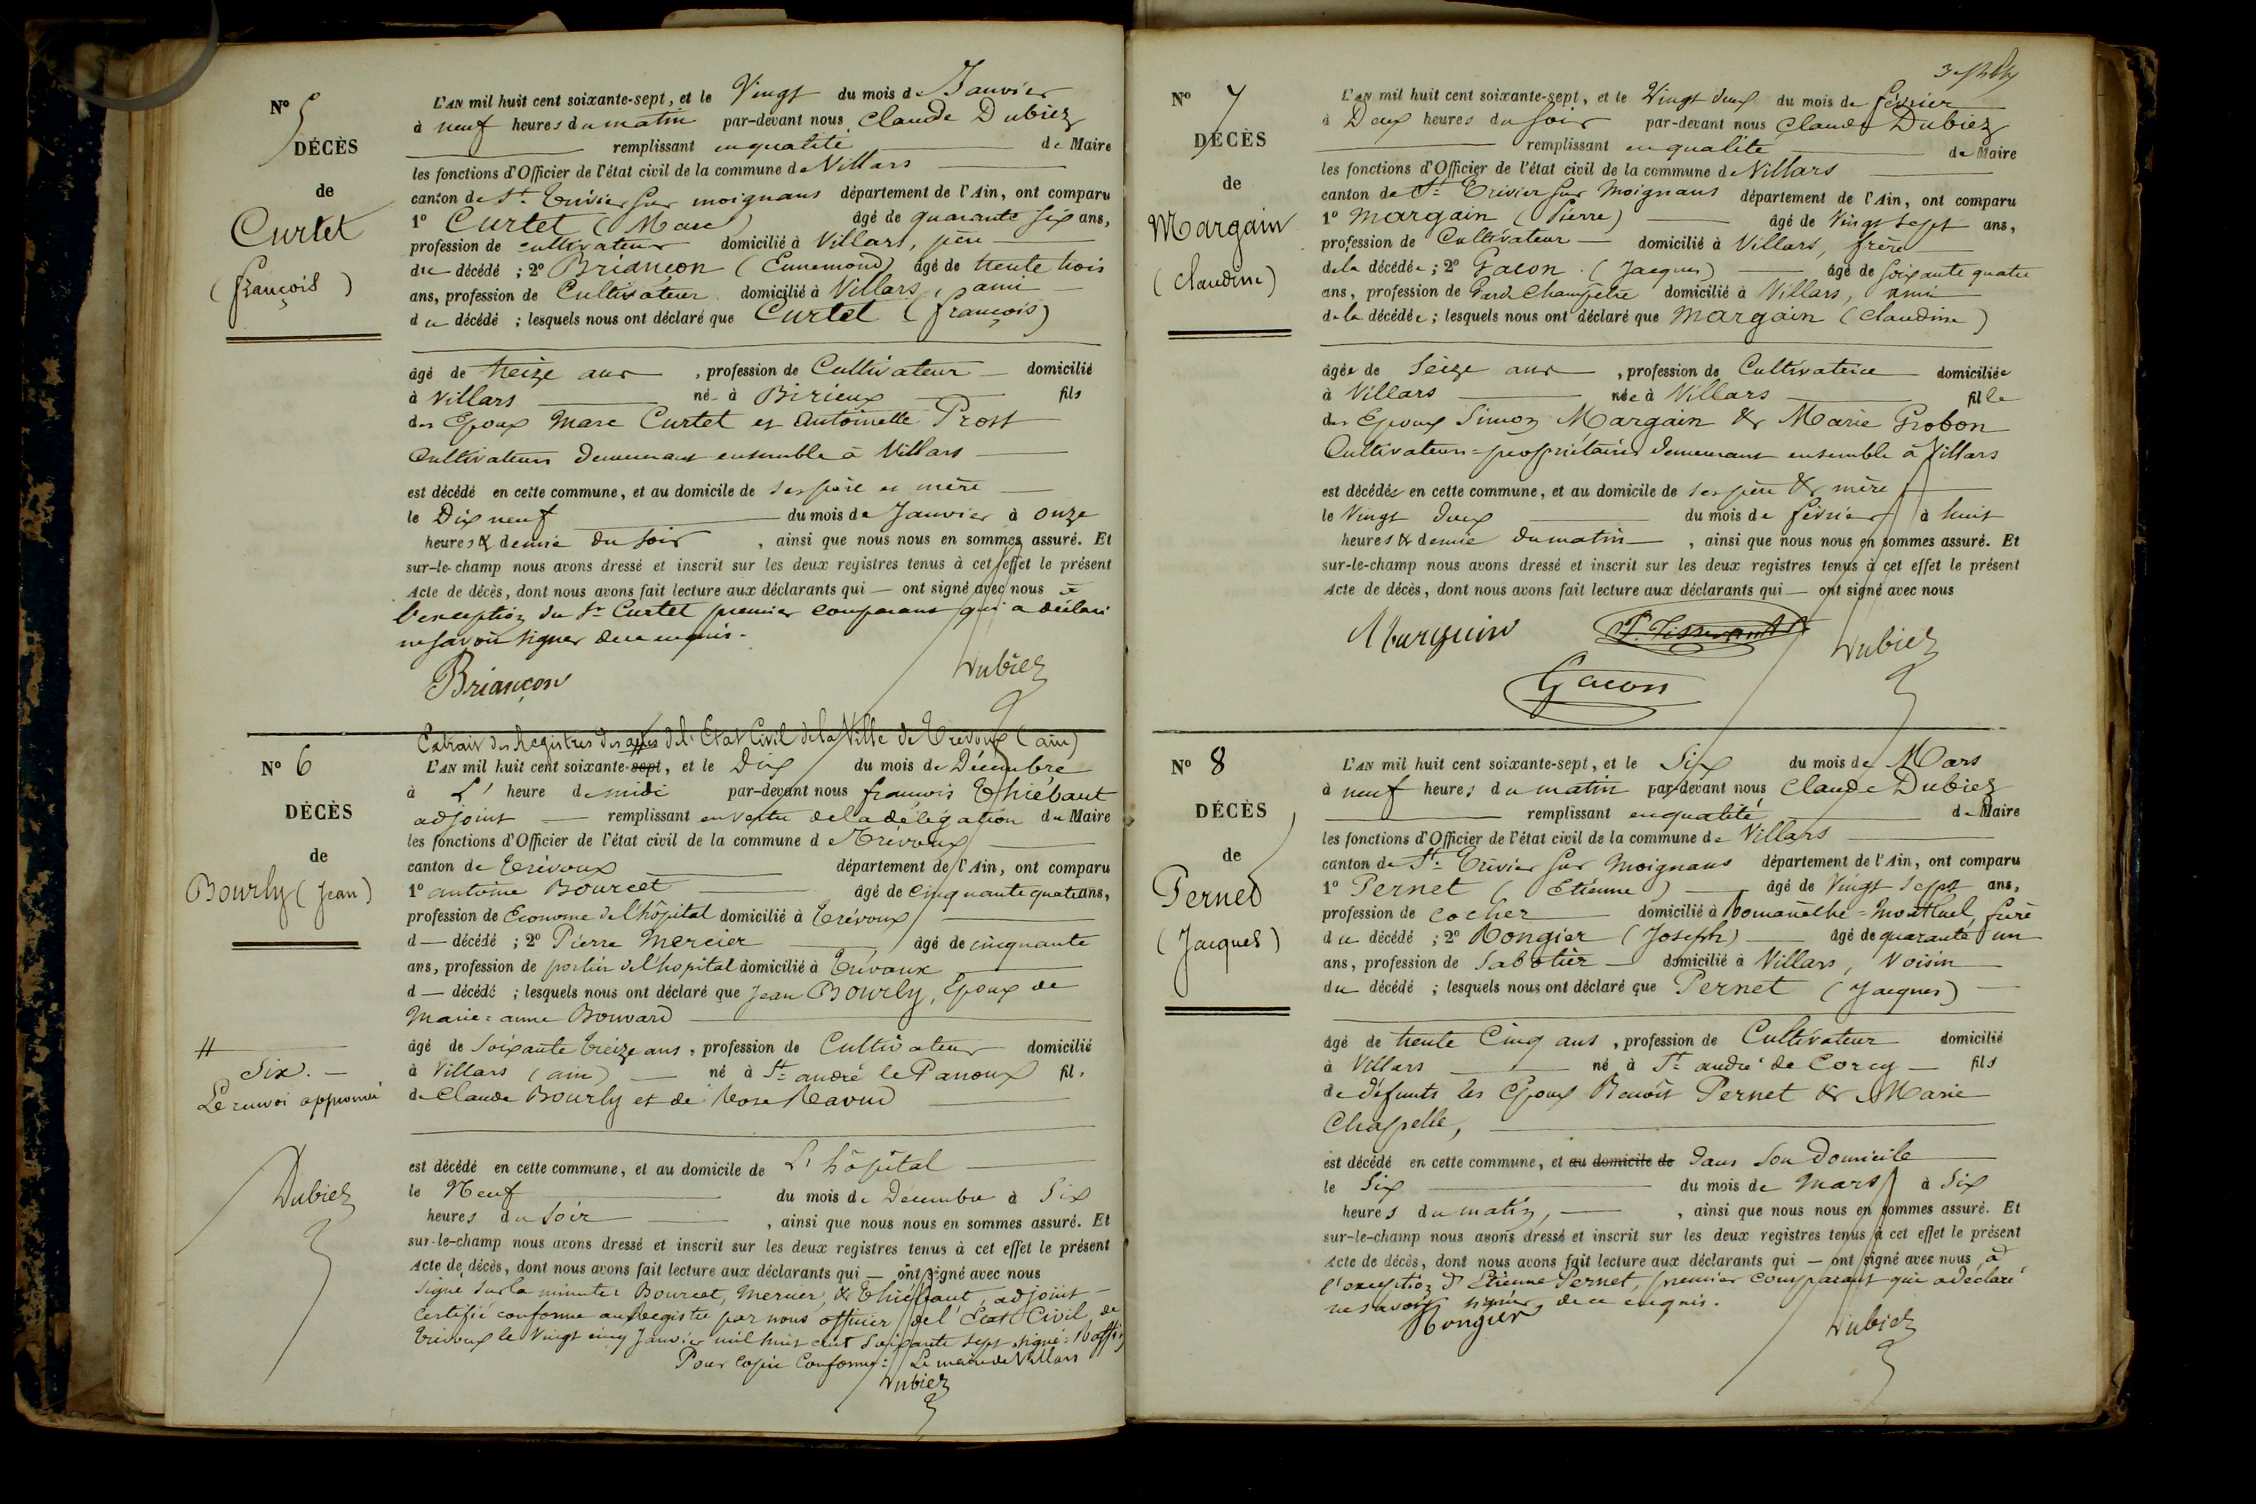 N° 5
DÉCÈS
de
Curtet
(françois)
L'AN mil huit cent soixante-sept, et le Vingt du mois de Janvier
à neuf heures du matin par-devant nous Claude Dubiez
remplissant en qualité de Maire
les fonctions d'Officier de l'état civil de la commune de Villars
canton de St Trivier sur moignans département de l'Ain, ont comparu
1° Curtet (Marc) âgé de quarante six ans,
profession de cultivateur domicilié à Villars, père
du décédé ; 2° Briancon (Ennemond) âgé de trente trois
ans, profession de Cultivateur domicilié à Villars, ami
du décédé ; lesquels nous ont déclaré que Curtet (françois)
âgé de treize ans , profession de Cultivateur domicilié
à Villars né à Birieux fils
des Epoux Marc Curtet et Antoinette Prost
Cultivateurs demeurant ensemble à Villars
est décédé en cette commune, et au domicile de ses père et mère
le Dix neuf du mois de Janvier à onze
heures & demie du soir , ainsi que nous nous en sommes assuré. Et
sur-le-champ nous avons dressé et inscrit sur les deux registres tenus à cet effet le présent
Acte de décès, dont nous avons fait lecture aux déclarants qui — ont signé avec nous à
l'exception du Sr Curtet premier comparant qui a déclaré
ne savoir signer de ce enquis.
Briançon Dubiez
N° 6
DÉCÈS
de
Bourly (Jean)
Extrait des Registres des actes de l'Etat Civil de la Ville de Trevoux (ain)
L'AN mil huit cent soixante-sept, et le Dix du mois de Décembre
à L' heure de midi par-devant nous françois Thiébaut
adjoint remplissant en vertu de la délégation du Maire
les fonctions d'Officier de l'état civil de la commune de Trévoux
canton de Trévoux département de l'Ain, ont comparu
1° antoine Bourcet âgé de cinquante quatre ans,
profession de Econome de l'hôpital domicilié à Trévoux
d — décédé ; 2° Pierre Mercier âgé de cinquante
ans, profession de portier de l'hopital domicilié à Trévoux
d — décédé ; lesquels nous ont déclaré que Jean Bourly, Epoux de
Marie-anne Bouvard
âgé de soixante treize ans , profession de Cultivateur domicilié
à Villars (ain) né à St andré le Panoux fils
de Claude Bourly et de Rose Ravud
est décédé en cette commune, et au domicile de L'hôpital
le Neuf du mois de Décembre à Six
heures du soir , ainsi que nous nous en sommes assuré. Et
sur-le-champ nous avons dressé et inscrit sur les deux registres tenus à cet effet le présent
Acte de décès, dont nous avons fait lecture aux déclarants qui — ont signé avec nous
Signé sur la minute : Bourcet, Mercier, & Thiébaut, adjoint
Certifié conforme aux Registre par nous officier de l'Etat Civil, de
Trévoux le Vingt cinq Janvier mil huit cent soixante sept signé :
Pour copie Conforme : Le maire de Villars
Dubiez
//
six. —
Le renvoi approuvé
Dubiez
N° 7
DÉCÈS
de
Margain
(Claudine)
L'AN mil huit cent soixante-sept, et le Vingt deux du mois de février
à Deux heures du soir par-devant nous Claude Dubiez
remplissant en qualité de Maire
les fonctions d'Officier de l'état civil de la commune de Villars
canton de St Trivier sur Moignans département de l'Ain, ont comparu
1° Margain (Pierre) âgé de Vingt sept ans,
profession de Cultivateur domicilié à Villars, frère
de la décédée ; 2° Gacon (Jacques) âgé de soixante quatre
ans, profession de Garde Champêtre domicilié à Villars, ami
de la décédée ; lesquels nous ont déclaré que Margain (Claudine)
âgée de Seize ans , profession de Cultivatrice domiciliée
à Villars née à Villars fille
des Epoux Simon Margain & Marie Grobon
Cultivateurs-propriétaires demeurant ensemble à Villars
est décédée en cette commune, et au domicile de ses père & mère
le Vingt deux du mois de février à huit
heures & demie du matin , ainsi que nous nous en sommes assuré. Et
sur-le-champ nous avons dressé et inscrit sur les deux registres tenus à cet effet le présent
Acte de décès, dont nous avons fait lecture aux déclarants qui — ont signé avec nous
Marguin Dubiez
Gacon
N° 8
DÉCÈS
de
Pernet
(Jacques)
L'AN mil huit cent soixante-sept, et le Six du mois de Mars
à neuf heures du matin par-devant nous Claude Dubiez
remplissant en qualité de Maire
les fonctions d'Officier de l'état civil de la commune de Villars
canton de St Trivier sur Moignans département de l'Ain, ont comparu
1° Pernet (Etienne) âgé de Vingt sept ans,
profession de cocher domicilié à Romanèche-Montluel, frère
du décédé ; 2° Rongier (Joseph) âgé de quarante un
ans, profession de Sabotier domicilié à Villars, Voisin
du décédé ; lesquels nous ont déclaré que Pernet (Jacques)
âgé de trente Cinq ans , profession de Cultivateur domicilié
à Villars né à St andré de Corcy fils
de défunts les Epoux Benoît Pernet & Marie
Chapelle,
est décédé en cette commune, et au domicile de dans son Domicile
le Six du mois de Mars à Six
heures du matin, , ainsi que nous nous en sommes assuré. Et
sur-le-champ nous avons dressé et inscrit sur les deux registres tenus à cet effet le présent
Acte de décès, dont nous avons fait lecture aux déclarants qui — ont signé avec nous à
l'exception d'Etienne Pernet, premier comparant qui a déclaré
ne savoir signer, de ce enquis.
Rongier Dubiez